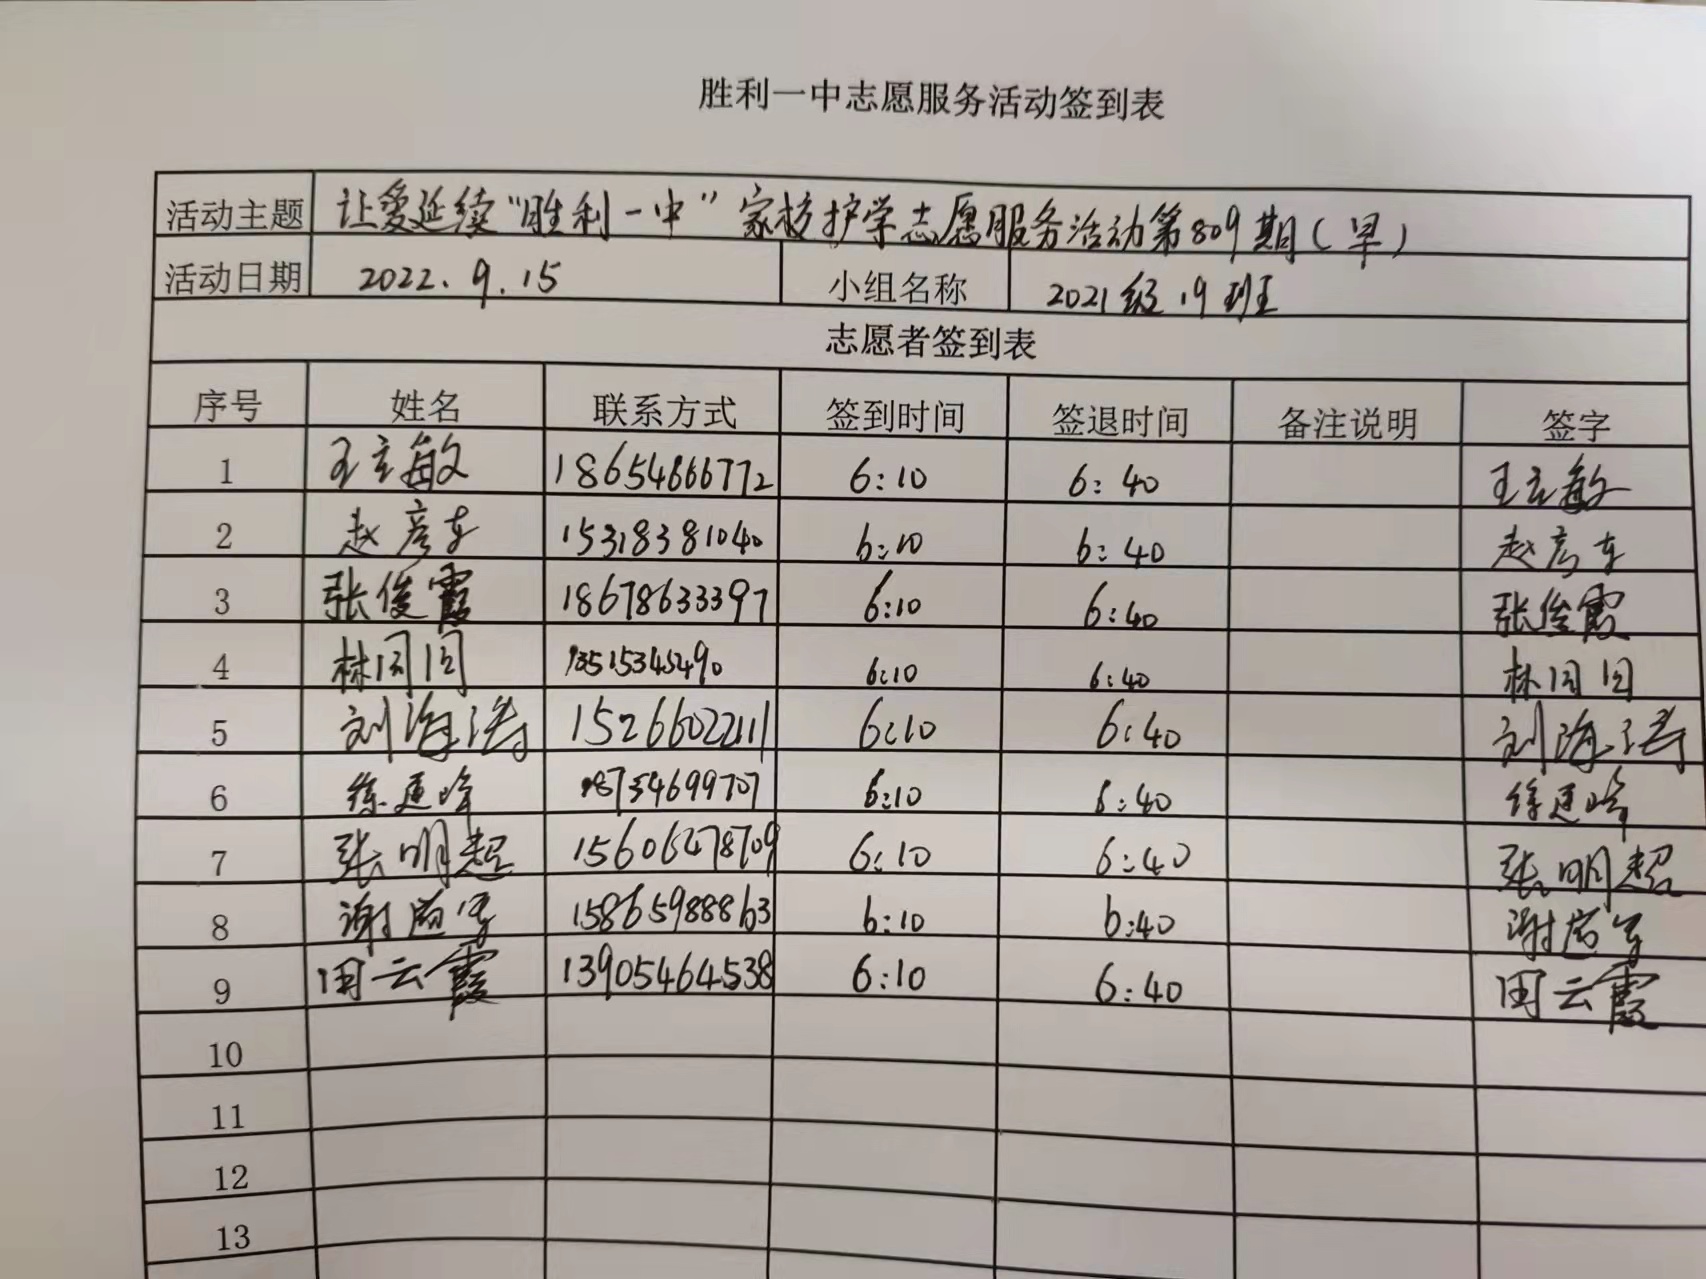 胜利一中志愿服务活动签到表
活动主题 让爱延续“胜利一中”家校护学志愿服务活动第809期(早)
活动日期 2022.9.15 小组名称 2021级19班
志愿者签到表
序号 姓名 联系方式 签到时间 签退时间 备注说明 签字
1 王立敏 18654666772 6:10 6:40 王立敏
2 赵彦东 15318381040 6:10 6:40 赵彦东
3 张俊霞 18678633397 6:10 6:40 张俊霞
4 林同同 13515345490 6:10 6:40 林同同
5 刘海涛 15266022111 6:10 6:40 刘海涛
6 徐建峰 18754699707 6:10 6:40 徐建峰
7 张明超 15606478709 6:10 6:40 张明超
8 谢 15865988863 6:10 6:40 谢
9 田云霞 13905464538 6:10 6:40 田云霞
10
11
12
13